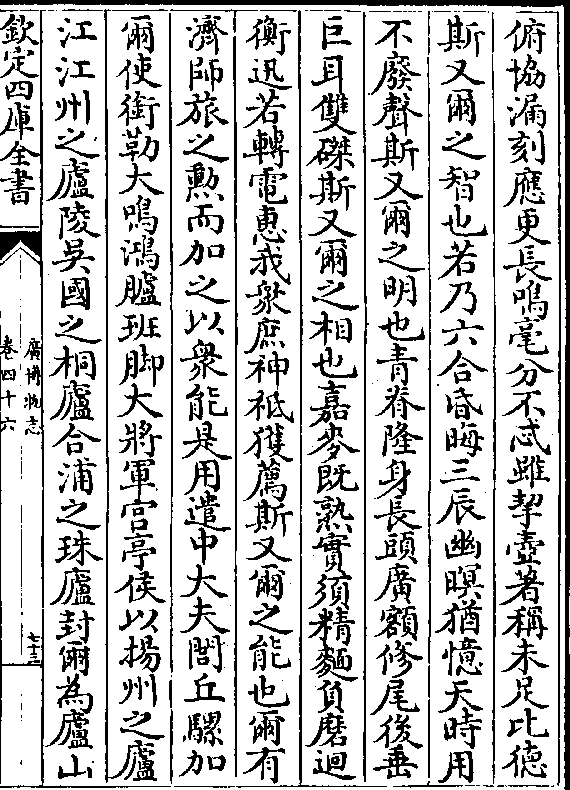 俯協漏刻應更長鳴毫分不忒雖挈壺著稱未足比德
斯又爾之智也若乃六合昏晦三辰幽暝猶憶天時用
不廢聲斯又爾之明也青脊隆身長頭廣額修尾後垂
巨耳雙磔斯又爾之相也嘉麥既熟實須精麵負磨迴
衡迅若轉電惠我衆庶神祗獲薦斯又爾之能也爾有
濟師旅之勲而加之以衆能是用遣中大夫閭丘騾加
爾使銜勒大鳴鴻臚班脚大將軍宫亭侯以揚州之廬
江江州之廬陵吳國之桐廬合浦之珠廬封爾為廬山
欽定四庫全書
廣博物志
卷四十六
七十三